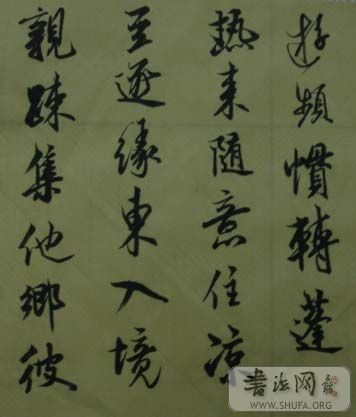 遊頻慣轉蓬
熱来随意住凉
至逐緣東入境
親疎集他鄉彼
書法网
WWW.SHUFA.ORG